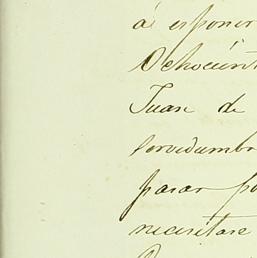 á esponer
Ochocient
Juan de
servidumbr
pasar po
necesitare